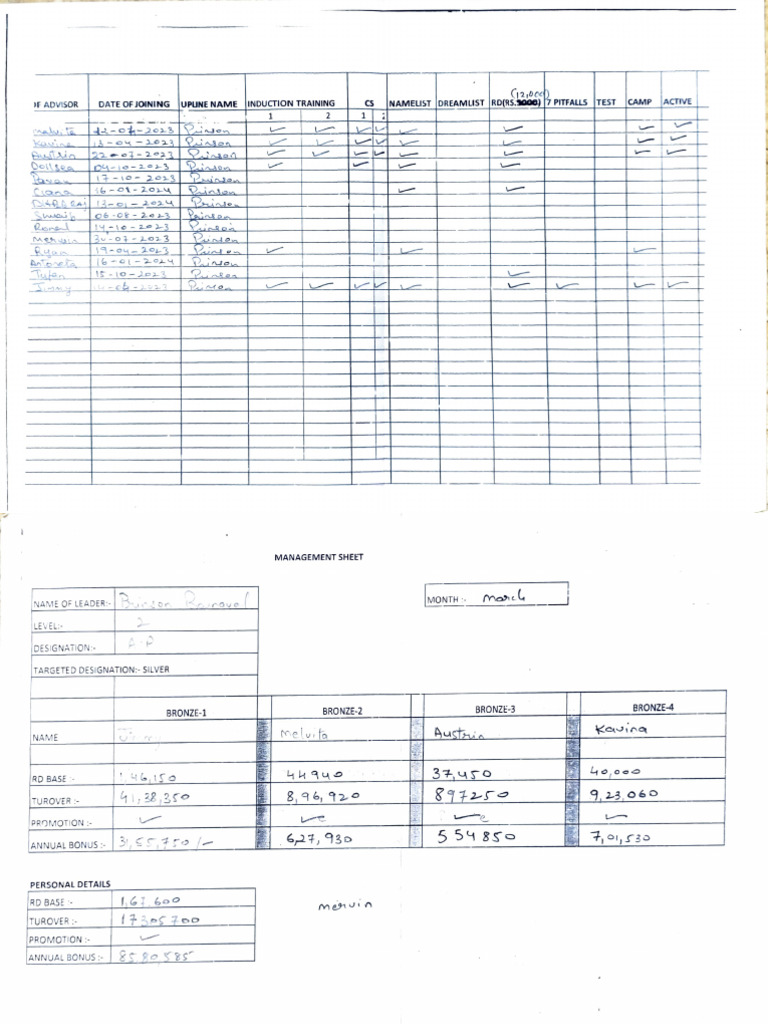 OF ADVISOR DATE OF JOINING UPLINE NAME INDUCTION TRAINING CS NAMELIST DREAMLIST RD(RS. (12,000) 7 PITFALLS TEST CAMP ACTIVE
1 2 1 2
Melvita 12-04-2023 Prinson ✓ ✓ ✓ ✓ ✓ ✓ ✓ ✓
Kavina 13-04-2023 Prinson ✓ ✓ ✓ ✓ ✓ ✓ ✓ ✓
Austrin 22-07-2023 Prinson ✓ ✓ ✓ ✓ ✓ ✓ ✓ ✓
04-10-2023 Prinson ✓ ✓ ✓ ✓
17-10-2023 Prinson
16-03-2024 Prinson ✓ ✓
13-01-2024 Prinson
06-08-2023 Prinson
14-10-2023 Prinson
Mervin 30-07-2023 Prinson
Ryan 19-04-2023 Prinson ✓ ✓ ✓
16-01-2024 Prinson
15-10-2023 Prinson ✓
Jimmy -04-2023 Prinson ✓ ✓ ✓ ✓ ✓ ✓ ✓ ✓ ✓
MANAGEMENT SHEET
NAME OF LEADER:-
MONTH :- March
LEVEL:- 2
DESIGNATION:-
TARGETED DESIGNATION:- SILVER
BRONZE-1 BRONZE-2 BRONZE-3 BRONZE-4
NAME Jimmy Melvita Austrin Kavina
RD BASE :- 1,46,150 44940 37,450 40,000
TUROVER :- 41,38,350 8,96,920 897250 9,23,060
PROMOTION :- ✓ ✓ ✓ ✓
ANNUAL BONUS :- 31,55,750/- 6,27,930 554850 7,01,530
PERSONAL DETAILS
RD BASE :- 1,67,600
mervin
TUROVER :- 17305700
PROMOTION :- ✓
ANNUAL BONUS:- 8580585